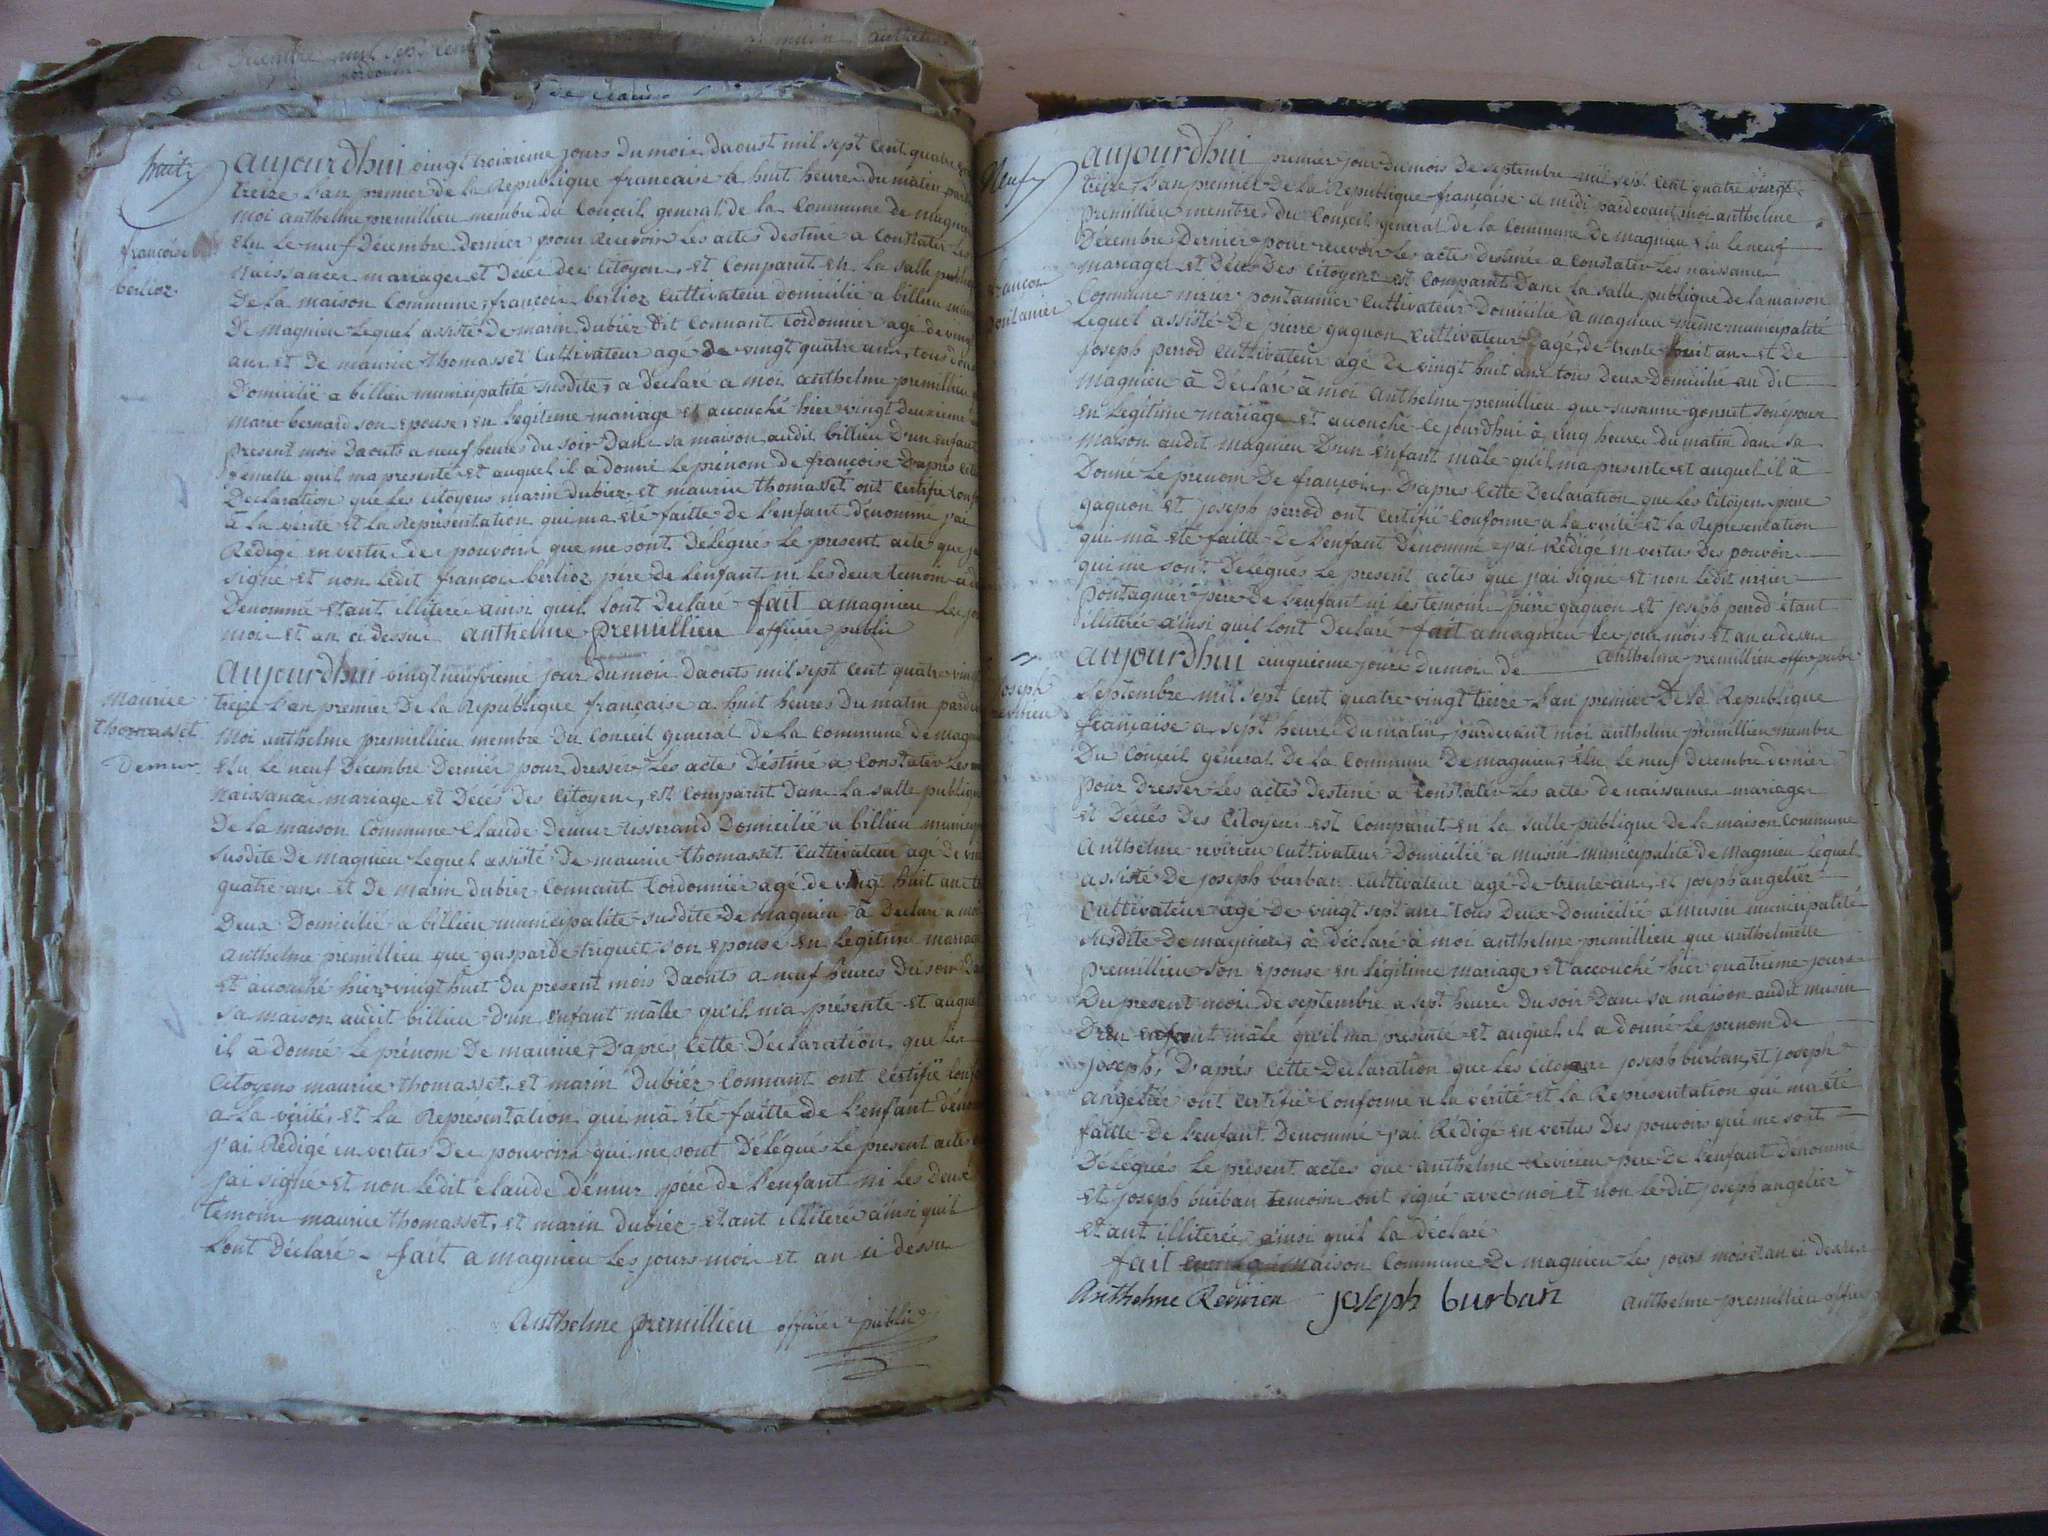 huit
françoise
berlioz
aujourdhui vingt troixieme jours du mois daoust mil sept Cent quatre
treize L'an premier de la Republique francaise a huit heures du matin
moi anthelme premillieu membre du Conçeil general de la Commune de magnieu
Elu Le neuf Décembre Dernier pour Recevoir Les actes destiné a Constater Les
naissances mariages et Décé des Citoyens, Est Comparut En la Salle
De la maison Commune, francois berlioz Cultivateur domicilié a billieu
De magnieu Lequel assisté De marin dubiez dit Connant Cordonnier agé de
ans et De maurice thomasset Cultivateur agé de vingt quatre ans, tous
Domicilié a billieu municipalité Susdite, a declaré a moi anthelme premillieu
marie bernard son Epouse, En Legitime mariage Et accouché hier vingt deuxieme
present mois Daouts a neuf heures du soir Dans sa maison audit billieu D'un Enfant
femelle quil ma presenté Et auquel il a donné Le prénom de françoise D'apres
Declaration que Les Citoyens marin dubiez Et maurice thomasset ont Certifié
à la verité Et la Représentation qui ma Eté faitte De L'enfant denommé j'ai
Rédigé En vertu des pouvoirs que me sont Délégués Le present acte que
signé Et non Ledit francois berlioz père de L'enfant ni Les deux temoin
Denommé Etant illiteré ainsi quil Lont Declaré fait a magnieu Les
mois Et an ci dessus anthelme premillieu officier public
maurice
thomasset
Demur
Aujourdhui vingt neufvieme jour du mois Daouts mil sept Cent quatre
treize L'an premier De la République française a huit heures Du matin
Moi anthelme premillieu membre Du Conceil general de la Commune de
Elu Le neuf Décembre Dernier pour dresser Les actes Déstiné a Constater Les
naissances mariages Et Décés Des Citoyens, Est Comparut Dans La salle publique
De la maison Commune Claude Demur tisserand Domicilié a billieu
susdite De magnieu Lequel assisté De maurice thomasset Cultivateur agé de
quatre ans Et De marin dubiez Connant Cordonnier agé de vingt huit ans
Deux Domicilié a billieu municipalite susdite de Magnieu à Déclaré a moi
Anthelme premillieu que gasparde triquet son Epouse En Legitime mariage
Et accouché hier vingt huit du present mois Daouts a neuf heures du soir
Sa maison audit billieu D'un Enfant mâlle qu'il m'a présenté Et auquel
il à donné Le prénom De maurice, D'apres Cette Déclaration que Les
Citoyens maurice thomasset, Et marin Dubiéz Connant ont Certifié
a la vérité, Et la Représentation qui mà Eté faitte de L'enfant
j'ai Rédigé En vertus Des pouvoirs qui me sont Délégués Le present acte
j'ai signé Et non Lédit Claude démur père de L'enfant ni Les Deux
temoin maurice thomasset, Et marin dubiéz Etant illiteré ainsi quil
Lont Déclaré fait a magnieu Les jours mois Et an ci dessus
Anthelme premillieu officier public
Neuf
francois
pontanier
aujourdhui premier jour du mois de septembre mil sept Cent quatre vingt
treize, L'an premier De la Republique française a midi pardevant moi anthelme
premillieu membres du Conçeil général de la Commune De magnieu Elu le neuf
Décembre Dernier pour recevoir Les actes déstiné a Constater Les naissance
mariages Et Décés Des Citoyens Est Comparut Dans La salle publique de la maison
Commune pontannier Cultivateur Domicilié à magnieu même municipalité
Lequel assisté De pierre gaguon Cultivateur agé, de trente huit ans Et De
joseph perrod Cultivateur agé De vingt huit ans tous Deux Domicilié au dit
magnieu à Déclaré à moi Anthelme premillieu que susanne gonnet son épouse
En Legitime mariage Et accouché Cejourdhui à cinq heures du matin dans sa
maison audit magnieu D'un Enfant mâle qu'il ma presenté Et auquel il à
Donné Le prénom De françois, D'apres Cette Déclaration que Les Citoyens pierre
gaguon Et joseph perrod ont Certifié Conforme a la verité Et la Représentation
qui mà Eté faitte De L'enfant Dénommé j'ai Rédigé En vertus Des pouvoirs
qui me sont Délégués Le present actes que j'ai signé Et non Lédit
pontagnier père De L'enfant ni Les temoins pierre gaguon Et joseph perrod étant
illiterée ainsi quil Lont Declaré fait a magnieu Les jour mois Et an ci dessus
anthelme premillieu offer publi
joseph
revirieu
aujourdhui cinquieme jours du mois de
Septembre mil sept Cent quatre vingt treize L'an premier De la Republique
française a sept heures Du matin, pardevant moi anthelme premillieu membre
Du Conçeil général De la Commune De magnieu, Elu Le neuf Decembre dernier
pour Dresser Les actes destiné a Constater Les actes de naissances mariages
Et Décés Des Citoyens Est Comparut En la Salle publique de la maison Commune
Anthelme revirieu Cultivateur Domicilié a musin Municipalité de Magnieu Léquel
assisté De joseph burban Cultivateur agé De trente ans, Et joseph angelier
Cultivateur agé De vingt sept ans tous Deux Domicilié a musin municipalité
susdite De magnieu, à Déclaré à moi anthelme premillieu que anthelmette
premillieu son Epouse En légitime mariage, Et accouché hier quatrieme jours
Du present mois de septembre a sept heures Du soir Dans sa maison audit musin
D'un enfant mâle qu'il ma présenté Et auquel il a donné Le prénom de
joseph, D'aprés Cétte Déclaration que Les Citoyens joseph burban, Et joseph
angélier ont Certifié Conforme a la vérité Et la Représentation qui ma été
faitte De L'enfant Dénommé j'ai Rédigé En vertus Des pouvoirs qui me sont
Délégués Le présent actes que anthelme Revirieu père De L'enfant Dénommé
Et joseph burban temoins ont signé avec moi Et non Le dit joseph angelier
Etant illiterée ainsi quil la déclaré
fait maison Commune De magnieu Les jours mois Et an ci dessus
Anthelme Revirieu joseph burban Anthelme premillieu offici